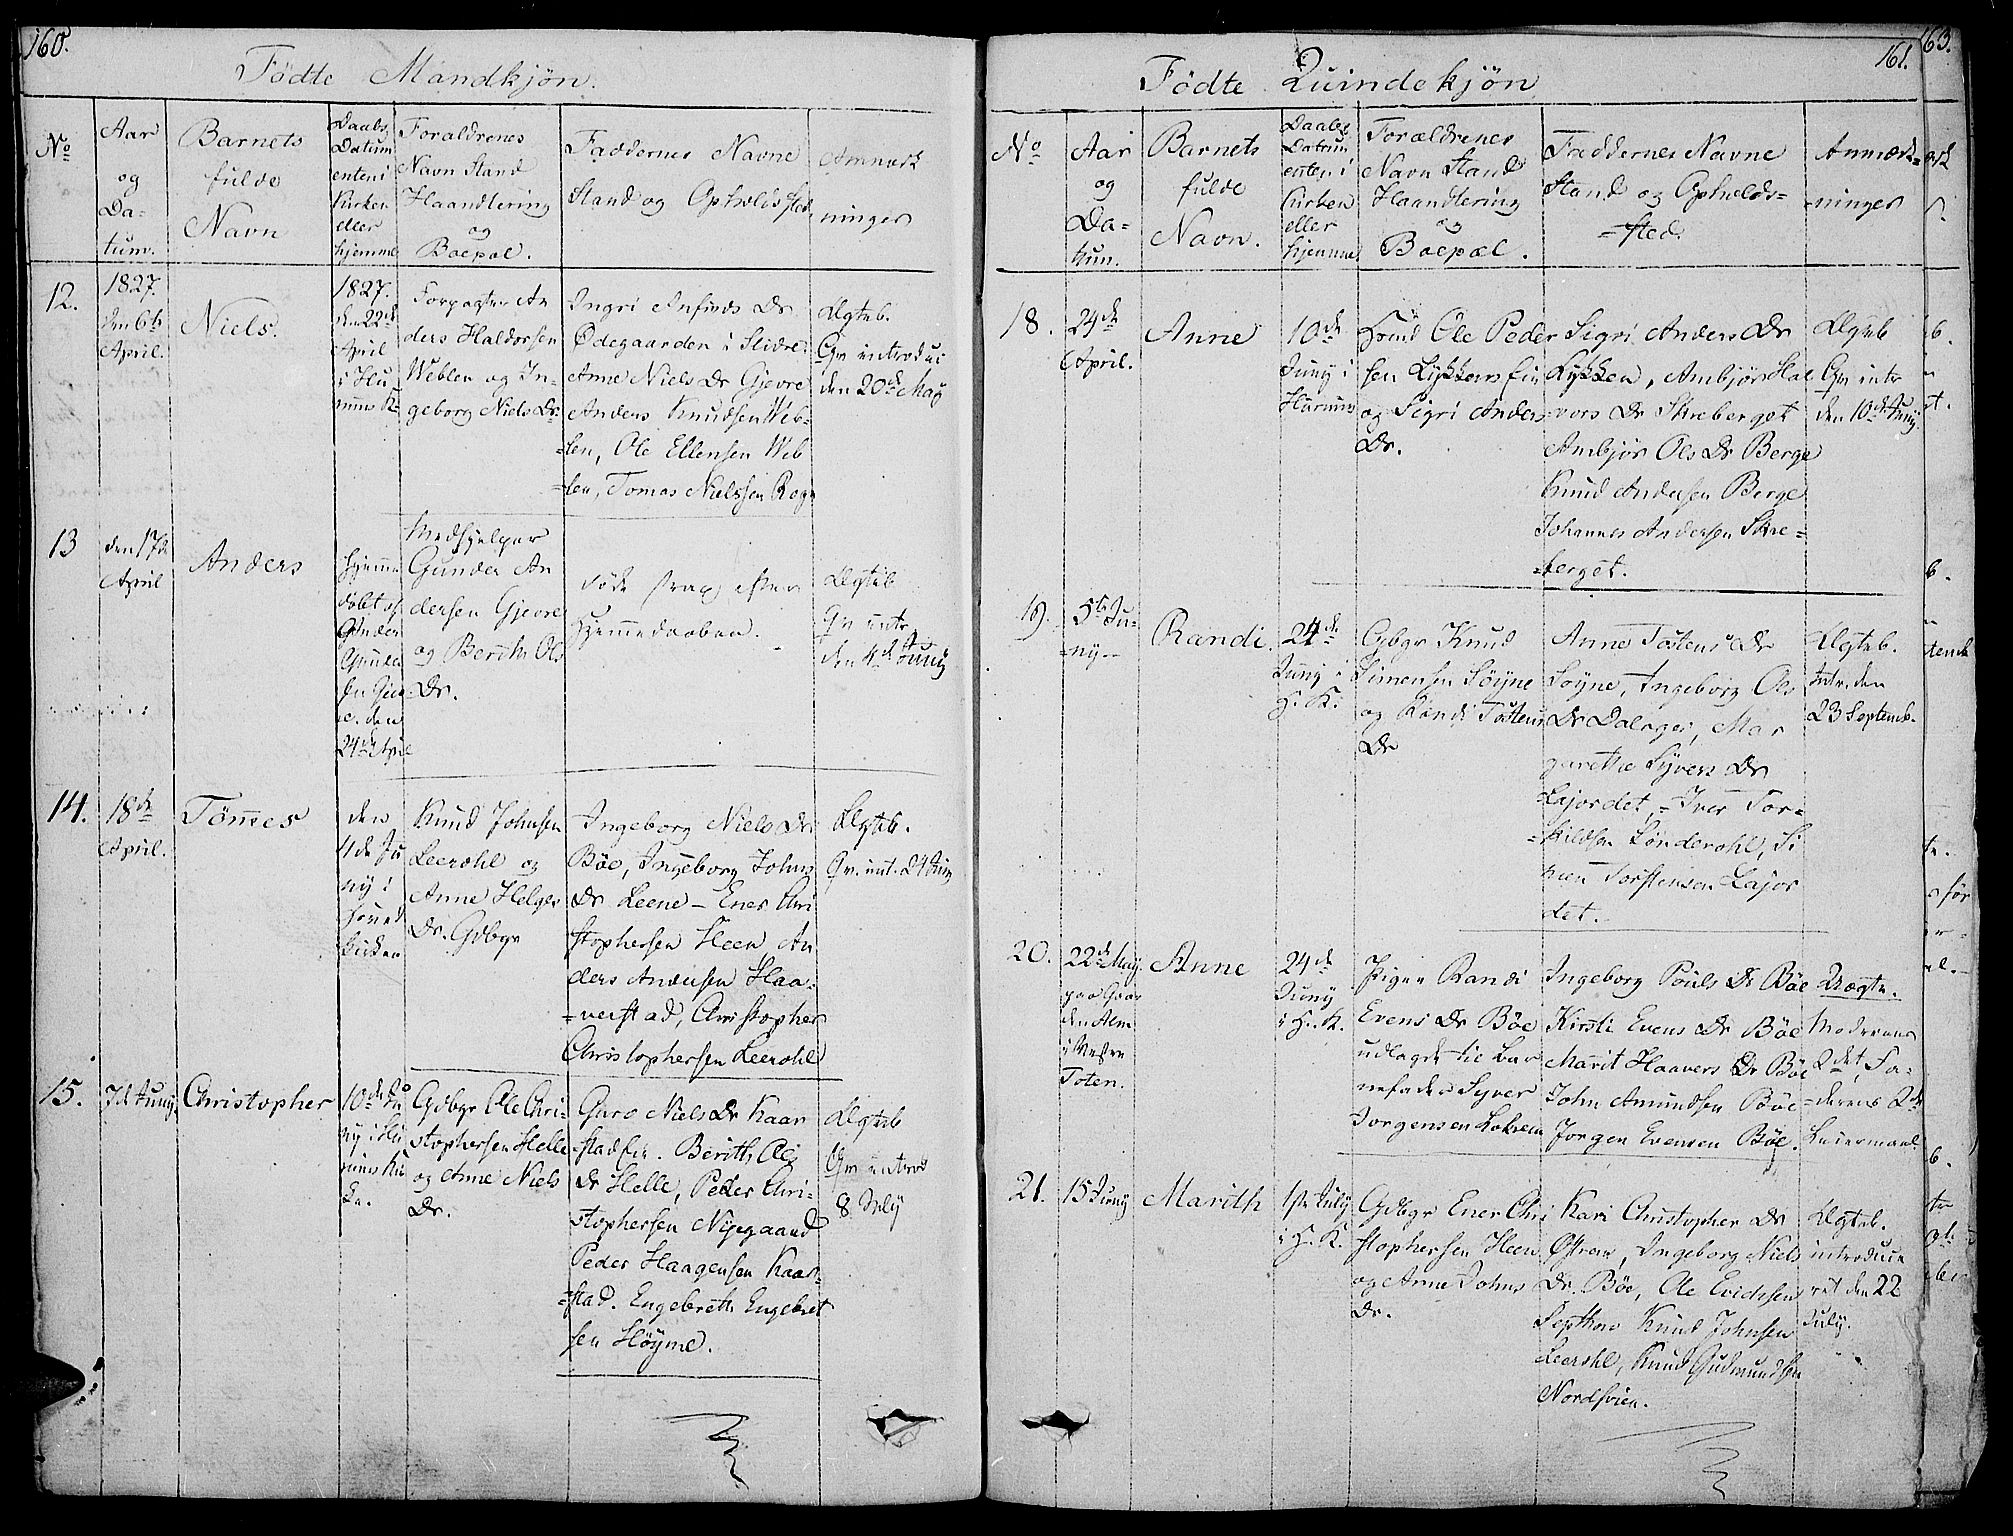 160.
Fødte Mandkjøn.
No
Aar
og
Da-
tum.
Barnets
fulde
Navn
Daabs
Datum
enten i
Kirken
eller
hjemme
Forældrenes
Navn Stand
Haandtering
og
Boepæl.
Faddernes Navne
Stand og Opholds sted
Anmærk
ninger
12.
1827.
den 6te
April.
Niels.
1827.
den 22de
April
i Hu
rums K.
Forpagter An
ders Haldorsen
Weblen og In-
geborg Niels Dr.
Ingri Anfinds Dr.
Ødegaarden i Slidre
Anne Niels Dr Gjevre
Anders Knudsen Web-
-len, Ole Ellensen Web
-len, Tomas Nielssen Rogn
Ægteb.
Qv introduc
den 20de May
13
den 17de
April
Anders
hjemme
døbt af
Gunder
Gunder
sen Gjev
re. den
24de April
Medhjelper
Gunder An
dersen Gjevre
og Berith Ols
Dr.
døde strax efter
Hjemmedaaben.
Ægteb
Qv intr
den 4de Juny
14.
18de
April.
Tømes
den
4de Ju
ny i
Hoved
kirken
Knud Johnsen
Leerohl og
Anne Helges
Dr. Gdbgr
Ingeborg Niels Dr
Böe, Ingeborg Johns
Dr Leene - Ener Chri
stophersen Heen An
ders Andersen Haa-
-verstad, Christopher
Christophersen Leerohl
Ægteb.
Qv. int. 24 Juny
15.
7de Juny
Christopher
10de Ju
ny i Hu
rums Kir
ke.
Gdbgr Ole Chri-
stophersen Helle
og Anne Niels
Dr.
Guro Niels Dr Kaar
-stad fin. Berith Ols
Dr Helle, Peder Chri-
stophersen Nijegaard
Peder Haagensen Kaar-
-stad. Engebreth Engebret
sen Höyme.
Ægteb
Qv introd
8 July
161.
Fødte Quindekjøn
No
Aar
og
Da-
tum.
Barnets
fulde
Navn.
Daabs
Datum
enten i
Kirken
eller
hjemme
Forældrenes
Navn Stand
Haandtering
og
Boepæl.
Faddernes Navne
Stand og Opholds-
-sted.
Anmærk-
-ninger
18.
24de
April.
Anne
10de
Juny i
Hurums
Huusmd Ole Peder
sen Lykken fin
og Sigri Anders
Dr.
Sigri Anders Dr
Lykken, Ambjør Hal
-vors Dr Skreberget
Ambjör Ols Dr Berge
Knud Andersen Berge
Johannes Andersen Skre-
-berget.
Ægteb
Qv intr
den 10de Juny
19.
5te Ju-
-ny
Randi
24de
Juny i
H. K.
Gbgr Knud
Simensen Söyne
og Randi Tostens
Dr
Anne Tostens Dr
Soyne, Ingeborg Ols
Dr Dalager, Mar
garethe Syvers Dr
Lajordet, Iver Tor-
-kildsen Sönderohl, Si
men Torstensen Lajor
det.
Ægteb.
Intr. den
23 Septemb.
20.
22de May.
paa Gaar
den Alm
i Vestre
Toten.
Anne
24de
Juny
i H. K.
Pigen Randi
Evens Dr Böe
udlagde til Bar
nefader Syver
Jorgensen Lokren
Ingeborg Pouls Dr Böe
Kirsti Evens Dr Böe
Marit Haavers Dr Böe
John Amundsen Böe
Jorgen Evensen Böe.
Uægte.
Moderens
2det, Fa-
-derens 2de
Leiermaal
21.
15 Juny
Marith
1ste July
i H. K.
Gdbgr Ener Chri
stophersen Heen
og Anne Johns
Dr.
Kari Christopher Dr
Østraae, Ingeborg Niels
Dr. Böe, Ole Erichsen
Knud Johnsen
Leerohl, Knud Gudmundsen
Nordsveen.
Ægteb.
introduce
ret den 22
July.
163.